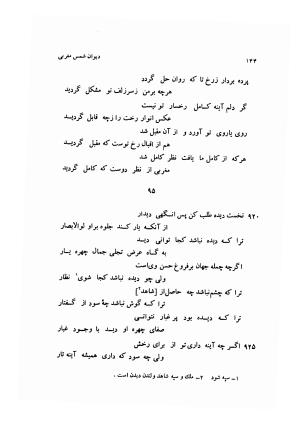 ۱۴۴
دیوان شمس مغربی
پرده بردار زرخ تا که روان حل گردد
هرچه برمن زسر زلف تو مشکل گردید
گر دلم آینه کامل رخسار تو نیست
عکس انوار رخت را زچه قابل گردید
روی یاروی تو آورد و از آن مقبل شد
هم از اقبال رخ توست که مقبل گردید
هرکه از کامل ما یافت نظر کامل شد
مغربی از نظر دوست که کامل گردید
۹۵
۹۲۰ نخست دیده طلب کن پس آنگهی دیدار
از آنکه یار کند جلوه بر اولوالابصار
ترا که دیده نباشد کجا توانی دید
به گاه عرض تجلی جمال چهره یار
اگرچه جمله جهان پرفروغ حسن وی‌است
ولی چو دیده نباشد کجا شوی' نظار
ترا که چشم نباشد چه حاصل از [شاهد']
ترا که گوش نباشد چه سود از گفتار
ترا که دیده بود پر غبار نتوانی
صفای چهره او دید با وجود غبار
۹۲۵ اگر چه آینه داری تو از برای رخش
ولی چه سود که داری همیشه آینه تار
۱ـ سپه شود ۲ـ ملک و سپه شاهد ولتدن دیدن است .